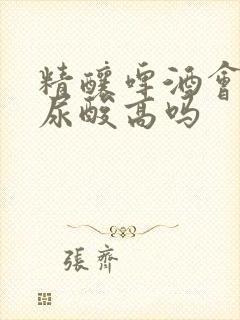 精釀啤酒會
尿酸高吗
張齊